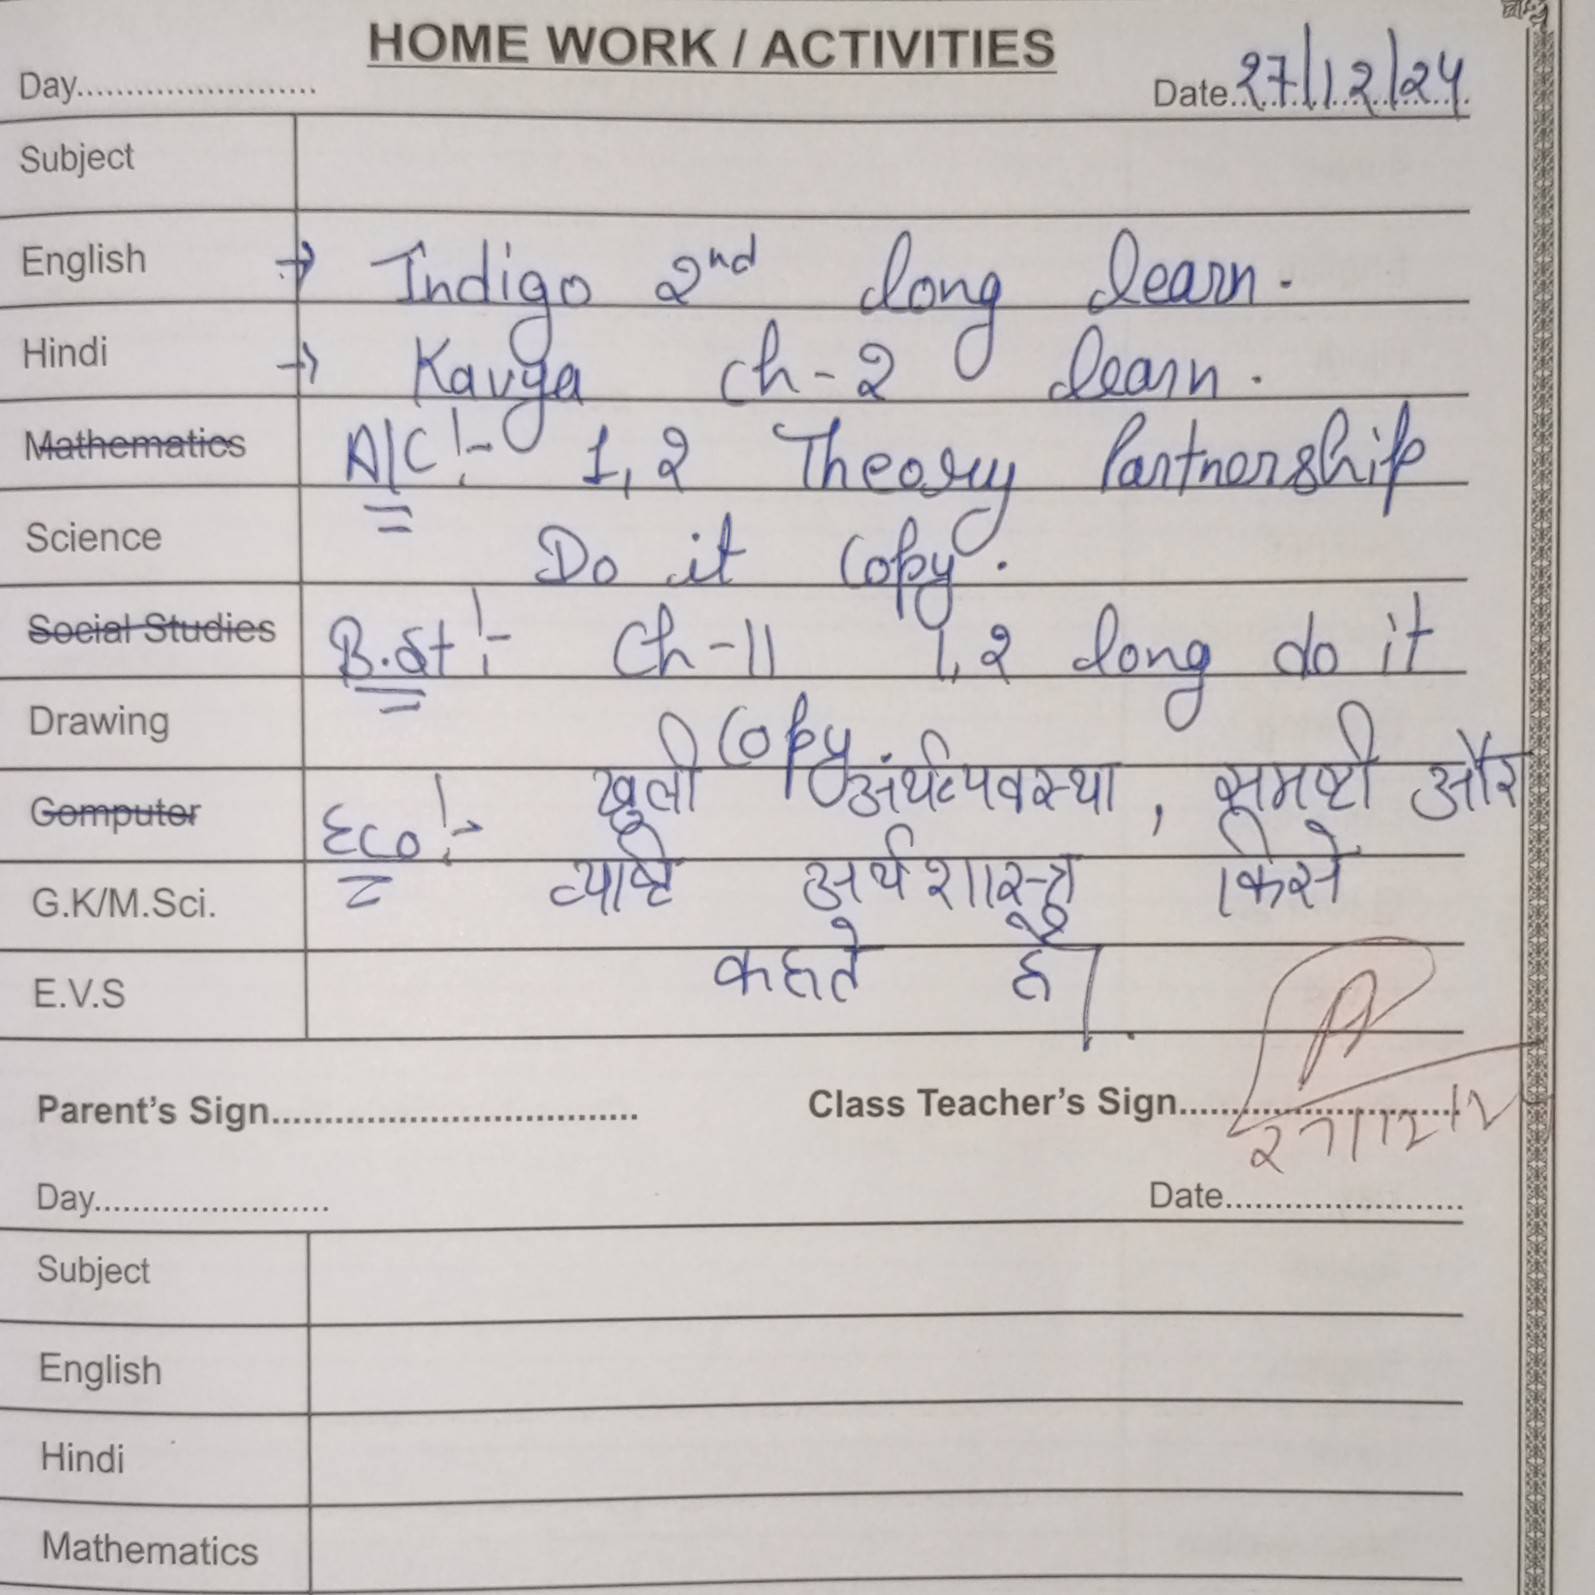 HOME WORK / ACTIVITIES
Day........................ Date 27/12/24
Subject
English → Indigo 2nd long learn.
Hindi → Kavya ch-2 learn.
Mathematics A/C :- 1, 2 Theory Partnership
Science Do it Copy.
Social Studies B.St :- Ch-11 1, 2 long do it
Drawing Copy
Computer Eco :- खुली अंर्थव्यवस्था, समष्टी और
G.K/M.Sci. व्याष्टि अर्थशास्त्र किसे
E.V.S कहते है।
Parent's Sign.................................... Class Teacher's Sign............................
27/12/2
Day........................ Date........................
Subject
English
Hindi
Mathematics